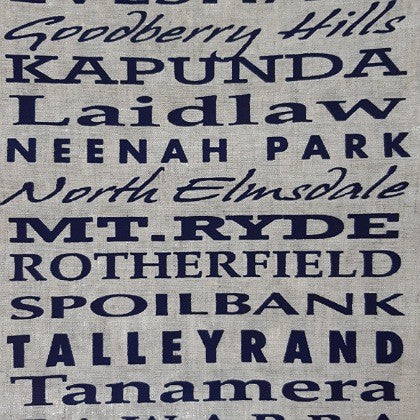 Goodberry Hills
KAPUNDA
Laidlaw
NEENAH PARK
North Elmsdale
MT. RYDE
ROTHERFIELD
SPOILBANK
TALLEYRAND
Tanamera